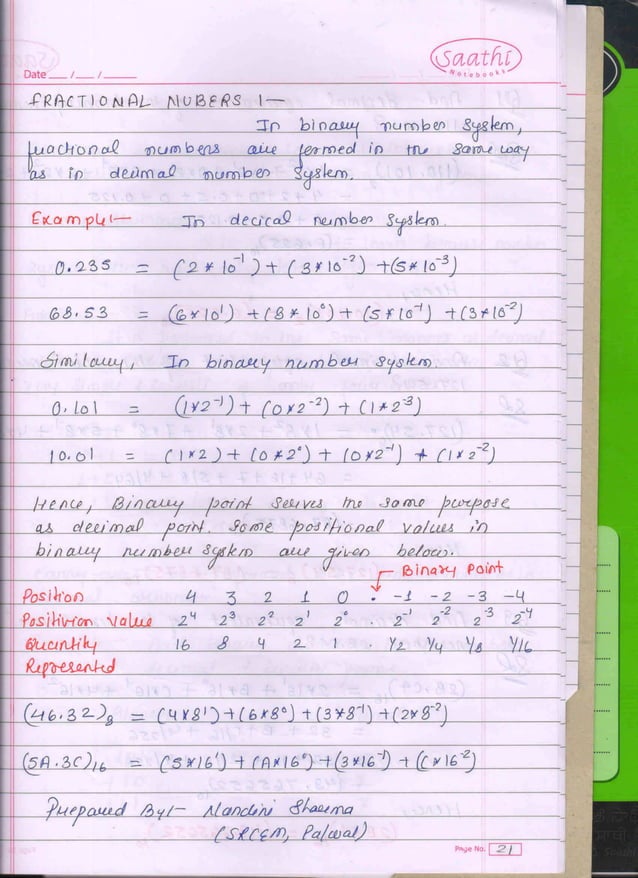 Saathi
Notebooks
Date __/__/____
FRACTIONAL NUBERS :-
In binary number system,
fractional numbers are formed in the same way
as in decimal number system.
Example:- In decical number system.
0.235 = (2*10⁻¹) + (3*10⁻²) + (5*10⁻³)
68.53 = (6*10¹) + (8*10⁰) + (5*10⁻¹) + (3*10⁻²)
Similary, In binary number system,
0.101 = (1*2⁻¹) + (0*2⁻²) + (1*2⁻³)
10.01 = (1*2) + (0*2⁰) + (0*2⁻¹) + (1*2⁻²)
Hence, Binary point serves the same purpose
as decimal point. Some positional values in
binary number system are given below.
Binary Point
Position 4 3 2 1 0 . -1 -2 -3 -4
Positivion value 2⁴ 2³ 2² 2¹ 2⁰ . 2⁻¹ 2⁻² 2⁻³ 2⁻⁴
Quantity 16 8 4 2 1 . 1/2 1/4 1/8 1/16
Represented
(46.32)₈ = (4*8¹) + (6*8⁰) + (3*8⁻¹) + (2*8⁻²)
(5A.3C)₁₆ = (5*16¹) + (A*16⁰) + (3*16⁻¹) + (C*16⁻²)
Prepared By:- Nandini Sharma
(SRCEM, Palwal)
Page No. 21